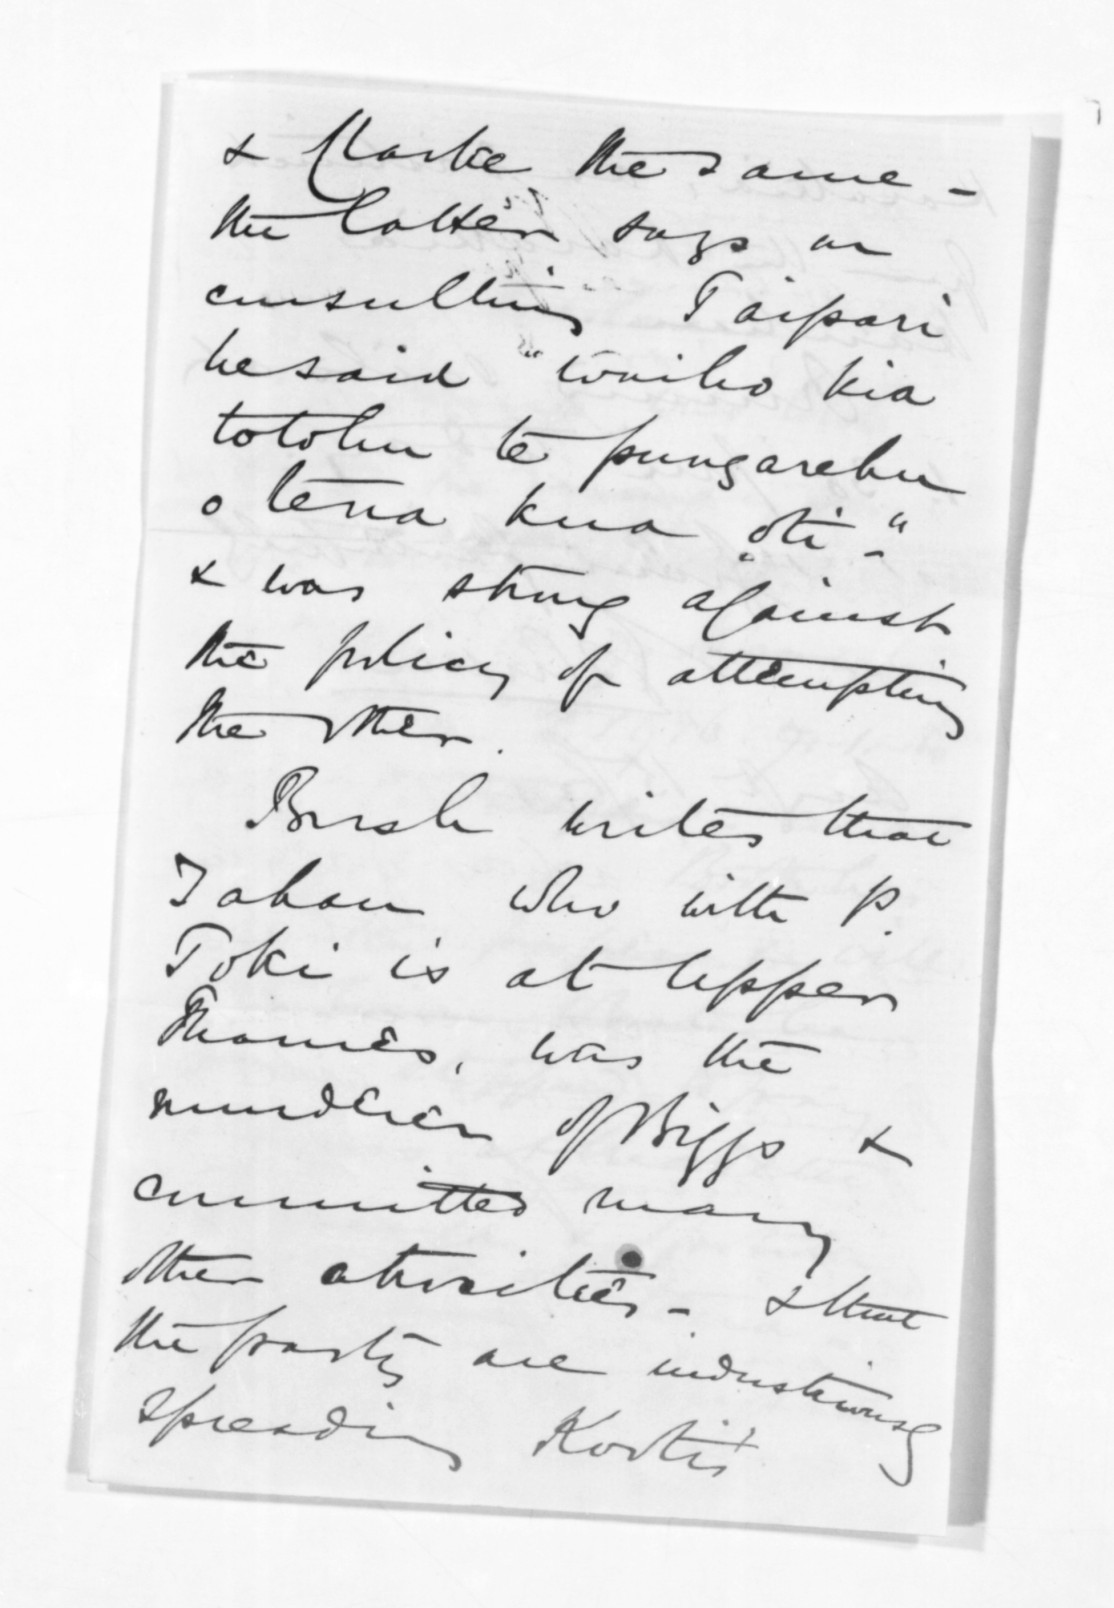 & Clarke the same -
the latter says on
consulting Taipari
he said "Waiho kia
totohu te pungarehu
o tena kua oti -"
& was strong against
the policy of attempting
the other.
Bush writes that
Tahau who with P.
Toki is at Upper
Thames, was the
murderer of Biggs &
committed many
other atrocities - & that
the party are industriously
spreading